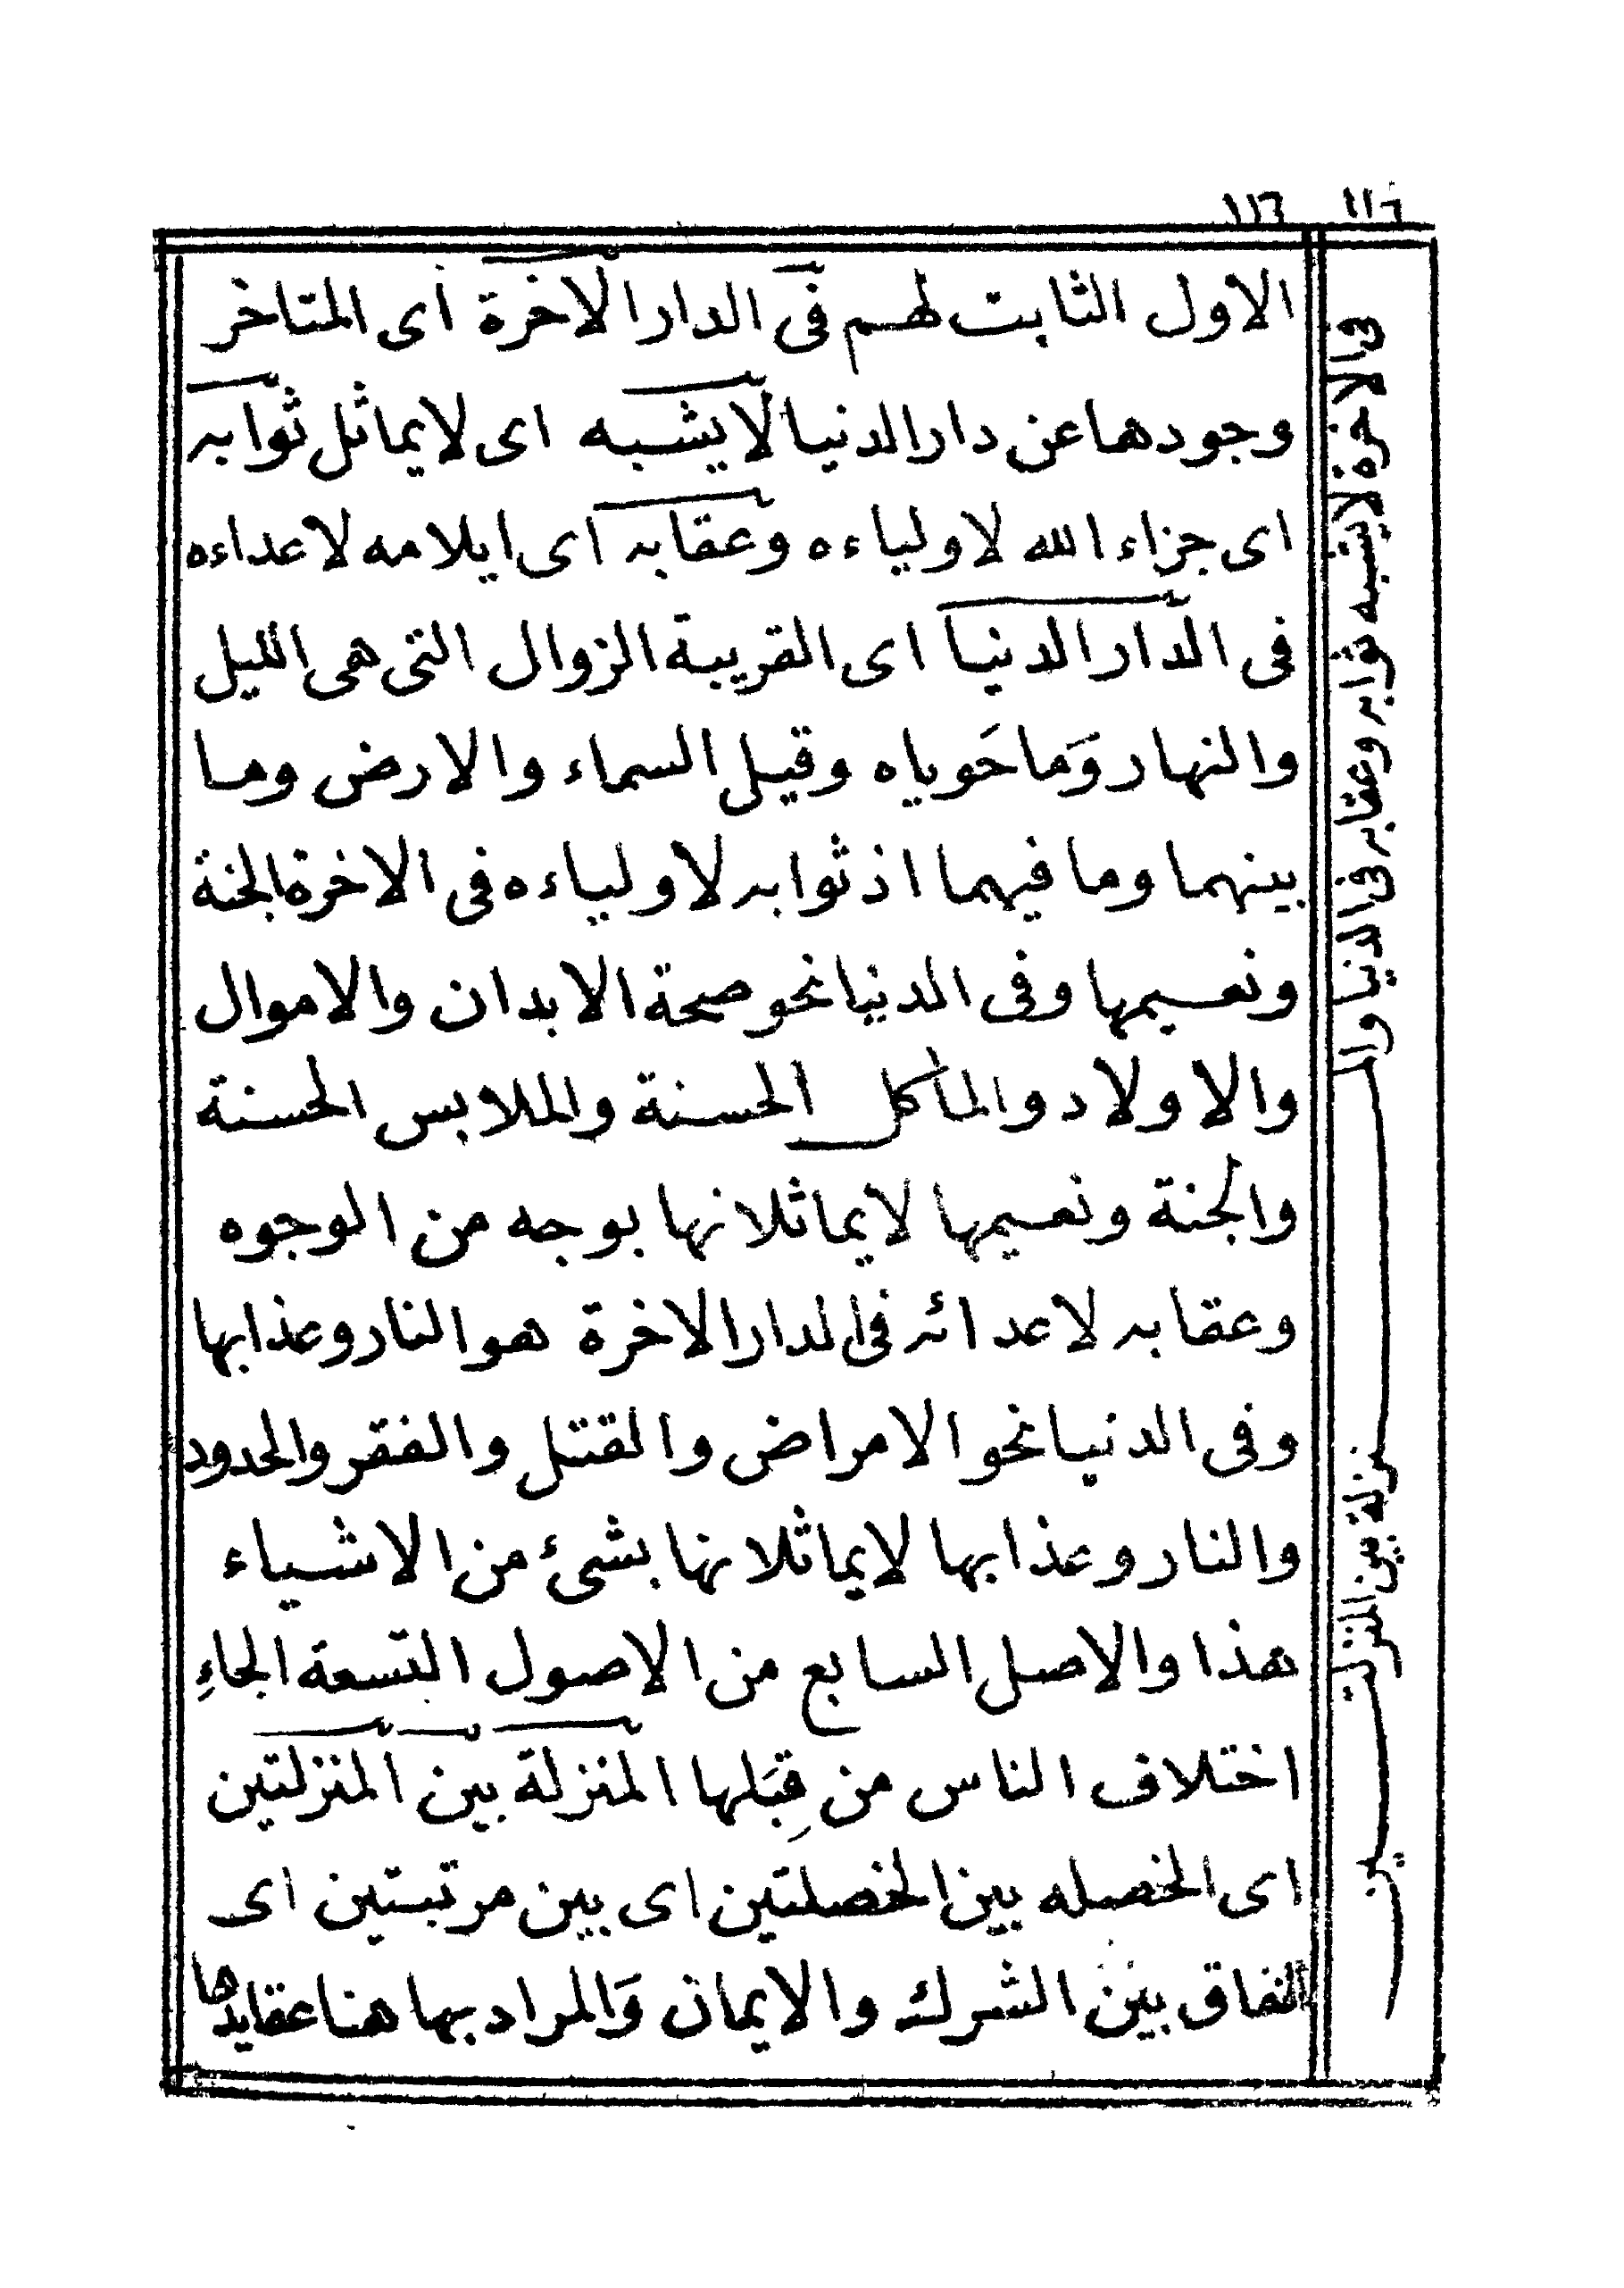 ١١٦ ١١٦
الاول الثابت لهم فى الدار الاخرة اى المتاخر
وجودها عن دار الدنيا لا يشبه اى لا يماثل ثوابه
اى جزاء الله لاولياءه وعقابه اى ايلامه لاعداءه
فى الدار الدنيا اى القريبة الزوال التى هى الليل
والنهار وَما حَوياه وقيل السماء والارض وما
بينهما وما فيهما اذ ثوابه لاولياءه فى الاخرة الجنة
ونعيمها وفى الدنيا نحو صحة الابدان والاموال
والاولاد والمأكل الحسنة والملابس الحسنة
والجنة ونعيمها لا يماثلانها بوجه من الوجوه
وعقابه لاعدائه فى الدار الاخرة هو النار وعذابها
وفى الدنيا نحو الامراض والقتل والفقر والحدود
والنار وعذابها لا يماثلانها بشئ من الاشياء
هذا والاصل السابع من الاصول التسعة الجاءِ
اختلاف الناس من قِبَلها المنزلة بين المنزلتين
اى الخصله بين الخصلتين اى بين مرتبتين اى
النفاق بين الشرك والايمان وَالمراد بها هنا عقايدها
فى الاخرة لا يشبه ثوابه وعقابه فى الدنيا وال
منزلة بين المنزلتين